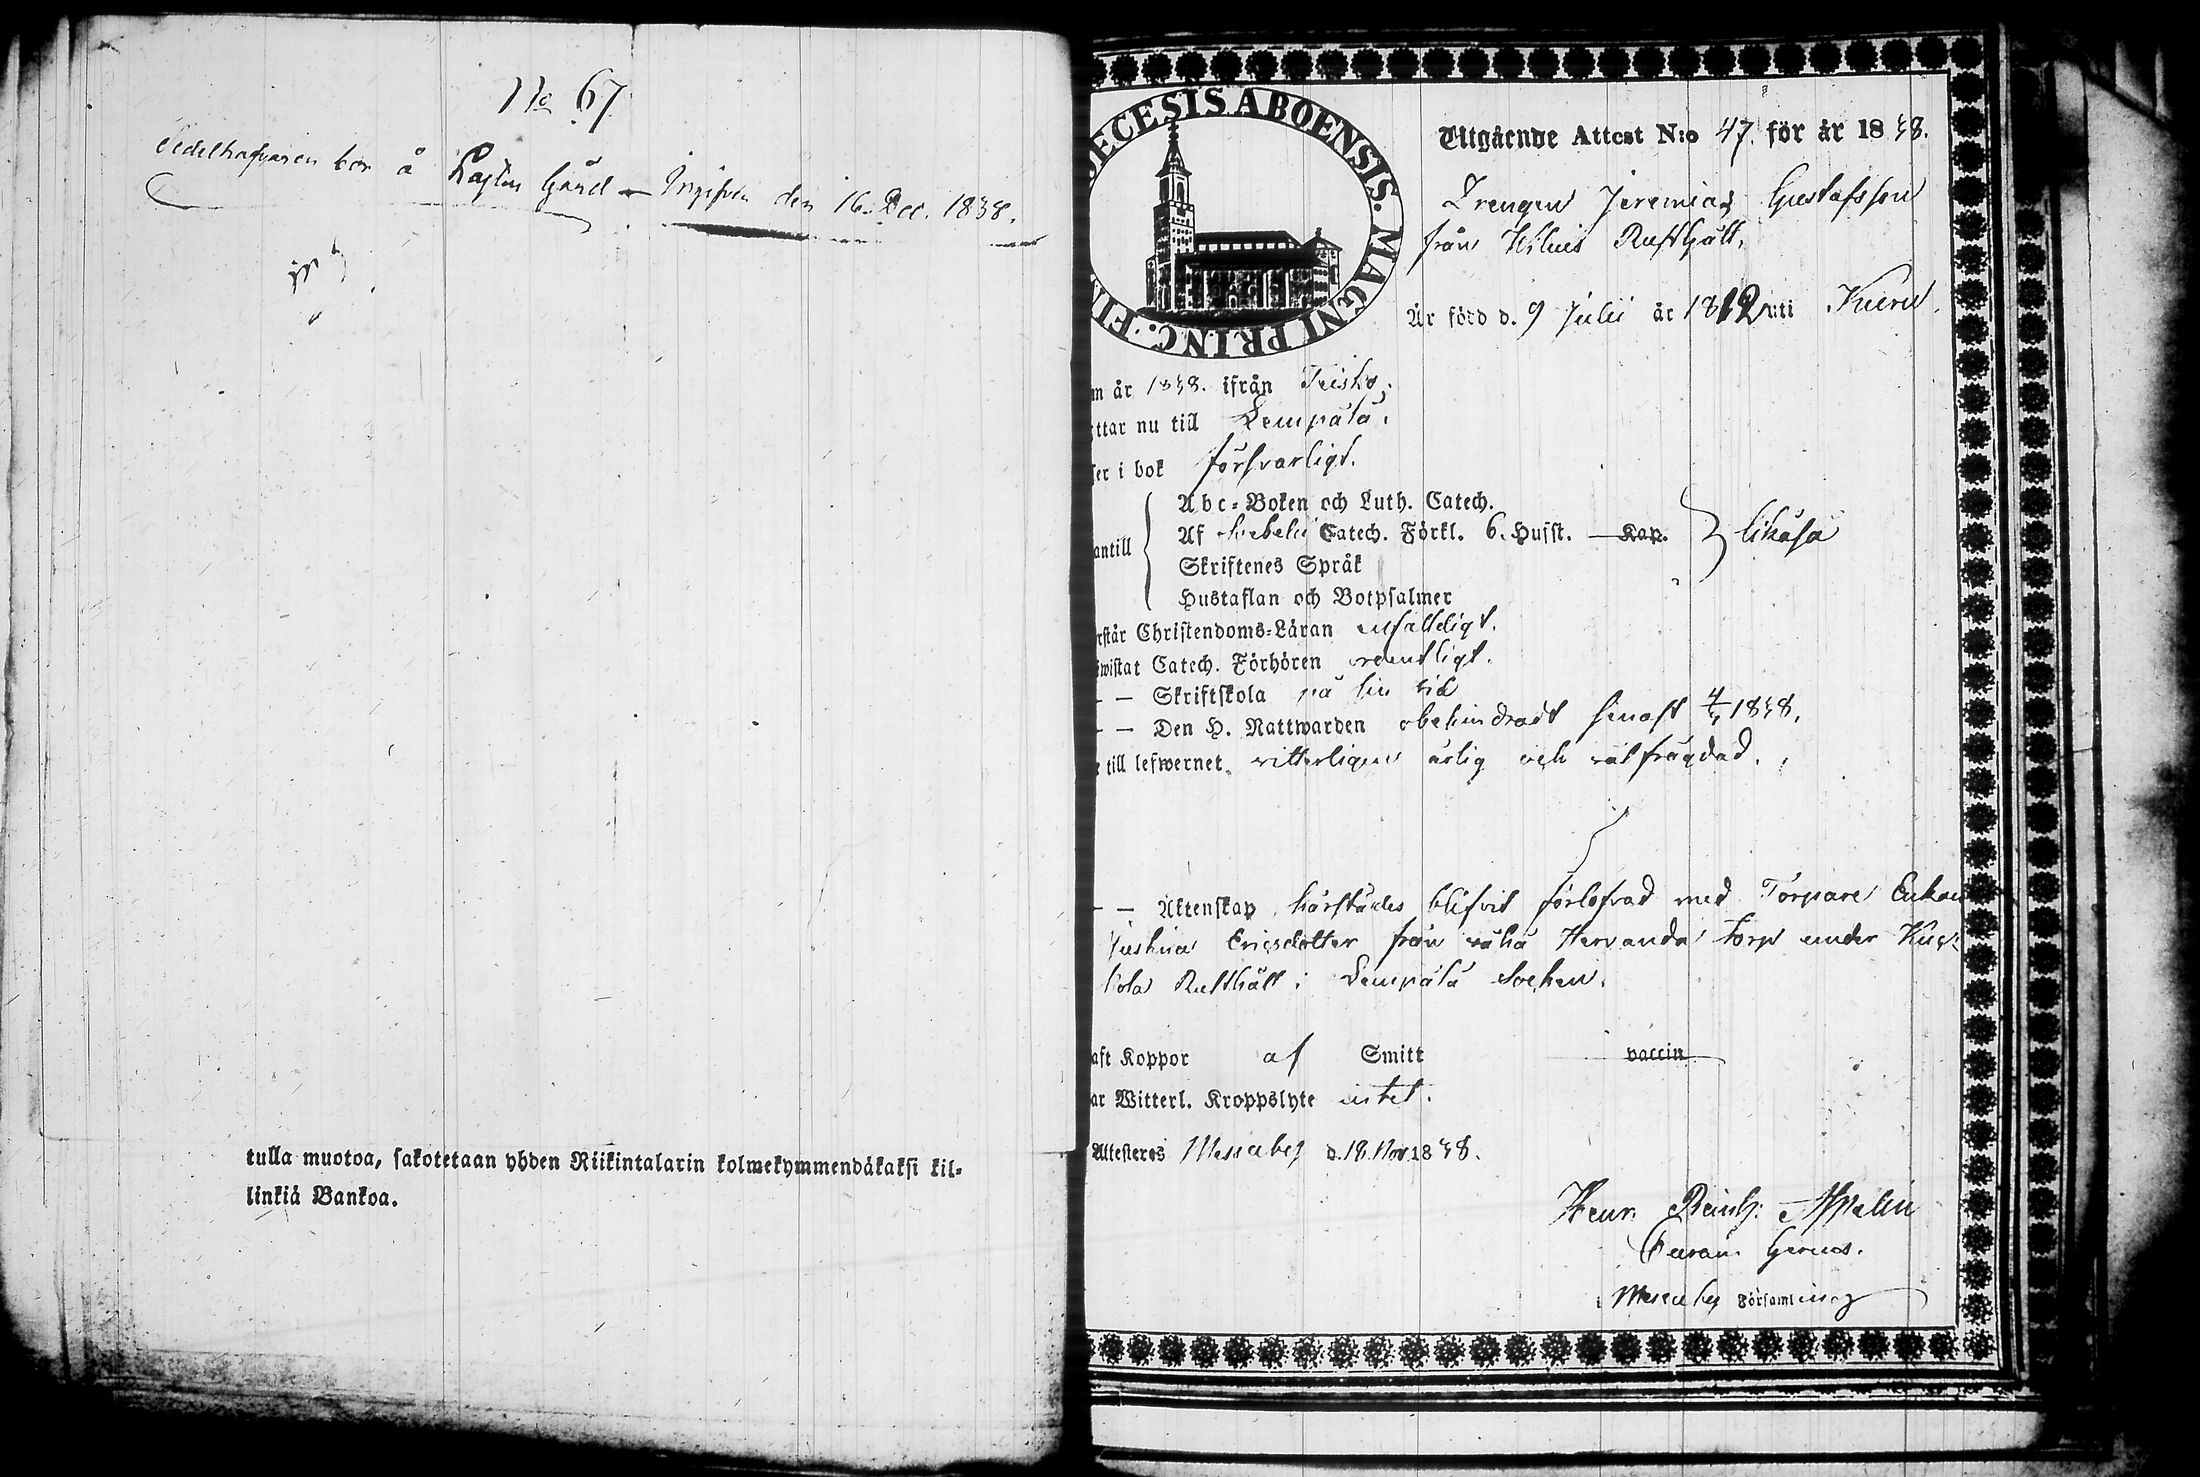 No 67
Sedelhafvaren bor å Laston Gård — Ingifven den 16 Dec. 1838.
tulla muotoa, sakotetaan yhden Riikintalarin kolmekymmendäkaksi kil-
linkiä Bankoa.
DIOECESIS ABOENSIS. MAGNI PRINC. FIN
Utgående Attest N:o 47. för år 1838.
Drengen Jeremias Gustafsson
från Rusthåll,
Är född d. 9 Julii år 1812 uti Kuru.
m år 1838. ifrån
ttar nu till Lempälä.
ser i bok försvarligt.
Abc-Boken och Luth. Catech.
antill Af Svebelii Catech. Förkl. 6. Husst. Kap. likaså
Skriftenes Språk
Hustaflan och Botpsalmer
rstår Christendoms-Läran enfaldigt.
iwistat Catech. Förhören ordentligt.
— — Skriftskola på sin tid
— — Den H. Nattwarden obehindradt senast 1838.
e till lefwernet witterligen ärlig och välfrägdad.
— — Äktenskap härstädes blifvit förlofvad med Torpare Enkan
Justina Ericsdotter från Hervanda Torp under
kola Rusthåll i Lempälä Socken.
aft Koppor af Smitt vaccin
ar Witterl. Kroppslyte intet.
Attesteres Messuby d. 18 Nov 1838.
Henr. Reinh. Appelin
i Messuby Församling